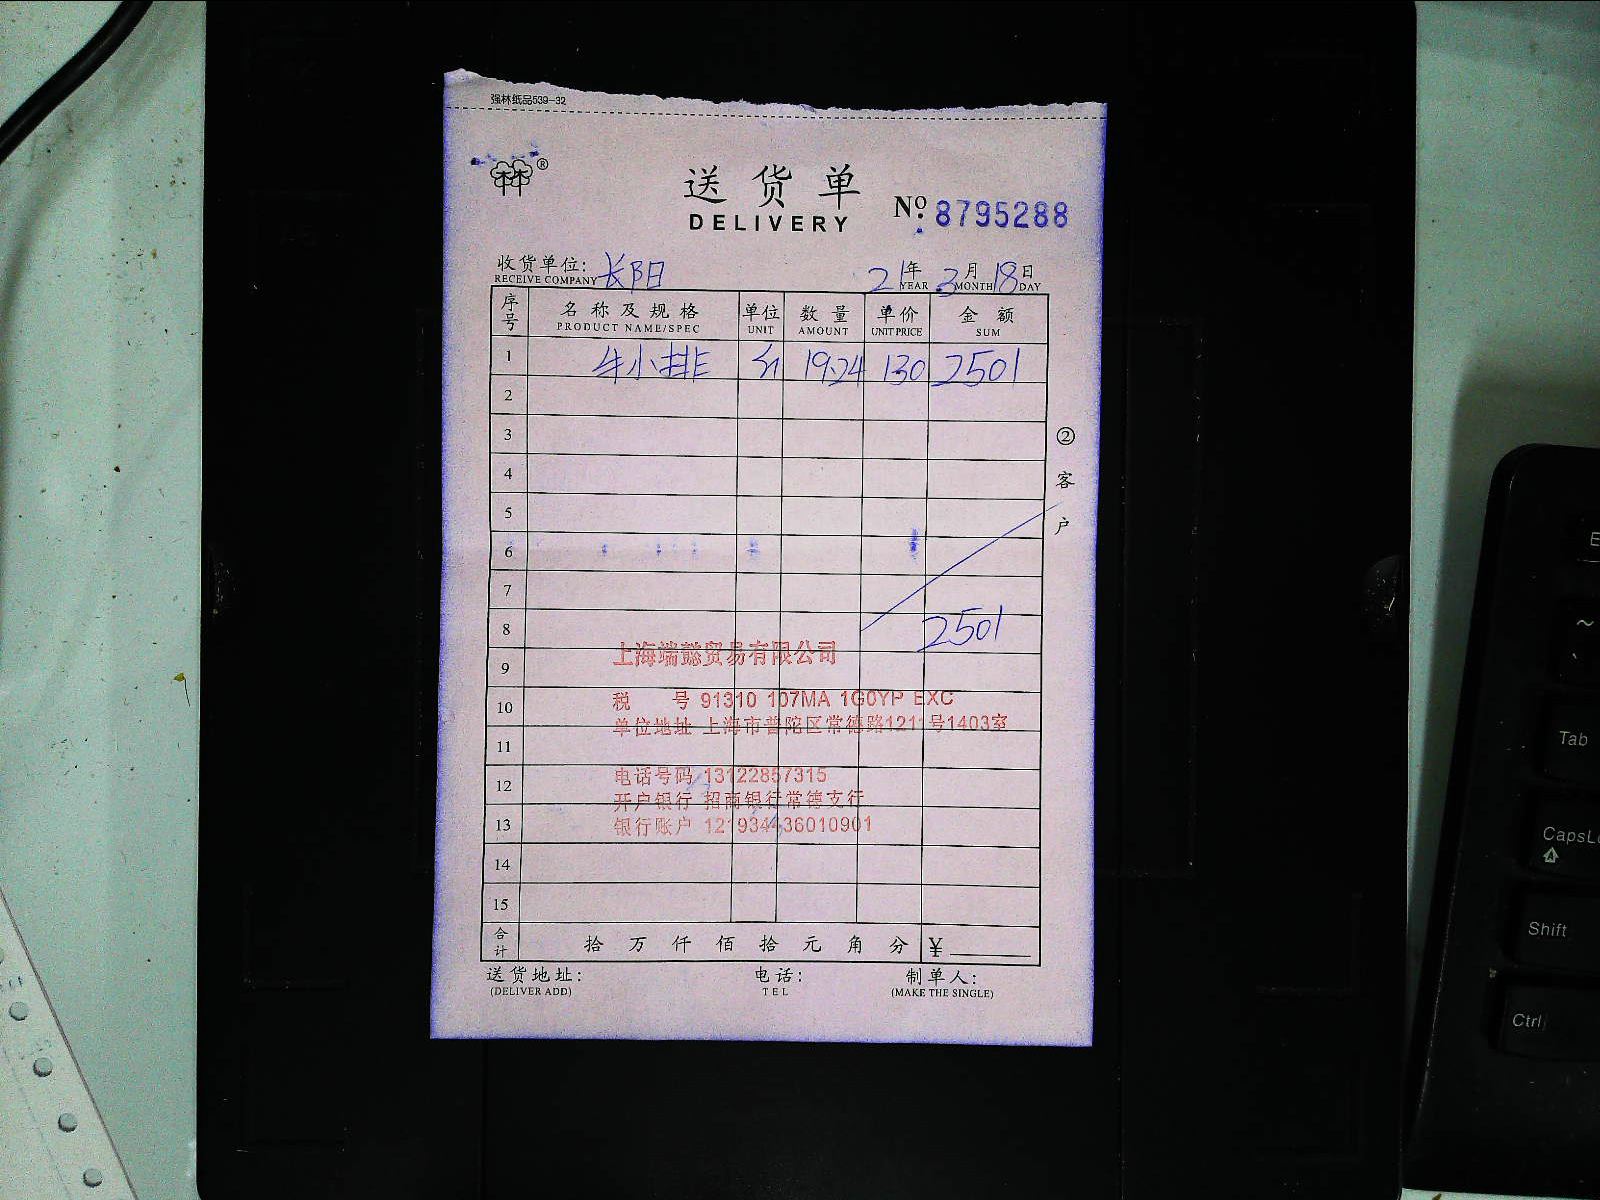 强林纸品539-32
林®
送货单
DELIVERY
№: 8795288
收货单位: 长阳
RECEIVE COMPANY
21年 3月 18日
YEAR MONTH DAY
序号 名称及规格 单位 数量 单价 金额
PRODUCT NAME/SPEC UNIT AMOUNT UNIT PRICE SUM
1 牛小排 19.24 130 2501
2
3
4
5
6
7
8 2501
9
10
11
12
13
14
15
②客户
上海端懿贸易有限公司
税 号 91310 107MA 1G0YP EXC
单位地址 上海市普陀区常德路1211号1403室
电话号码 13122857315
开户银行 招商银行常德支行
银行账户 121934436010901
合计 拾 万 仟 佰 拾 元 角 分 ¥
送货地址: 电话: 制单人:
(DELIVER ADD) TEL (MAKE THE SINGLE)
E
~
Tab
CapsLo
Shift
Ctrl